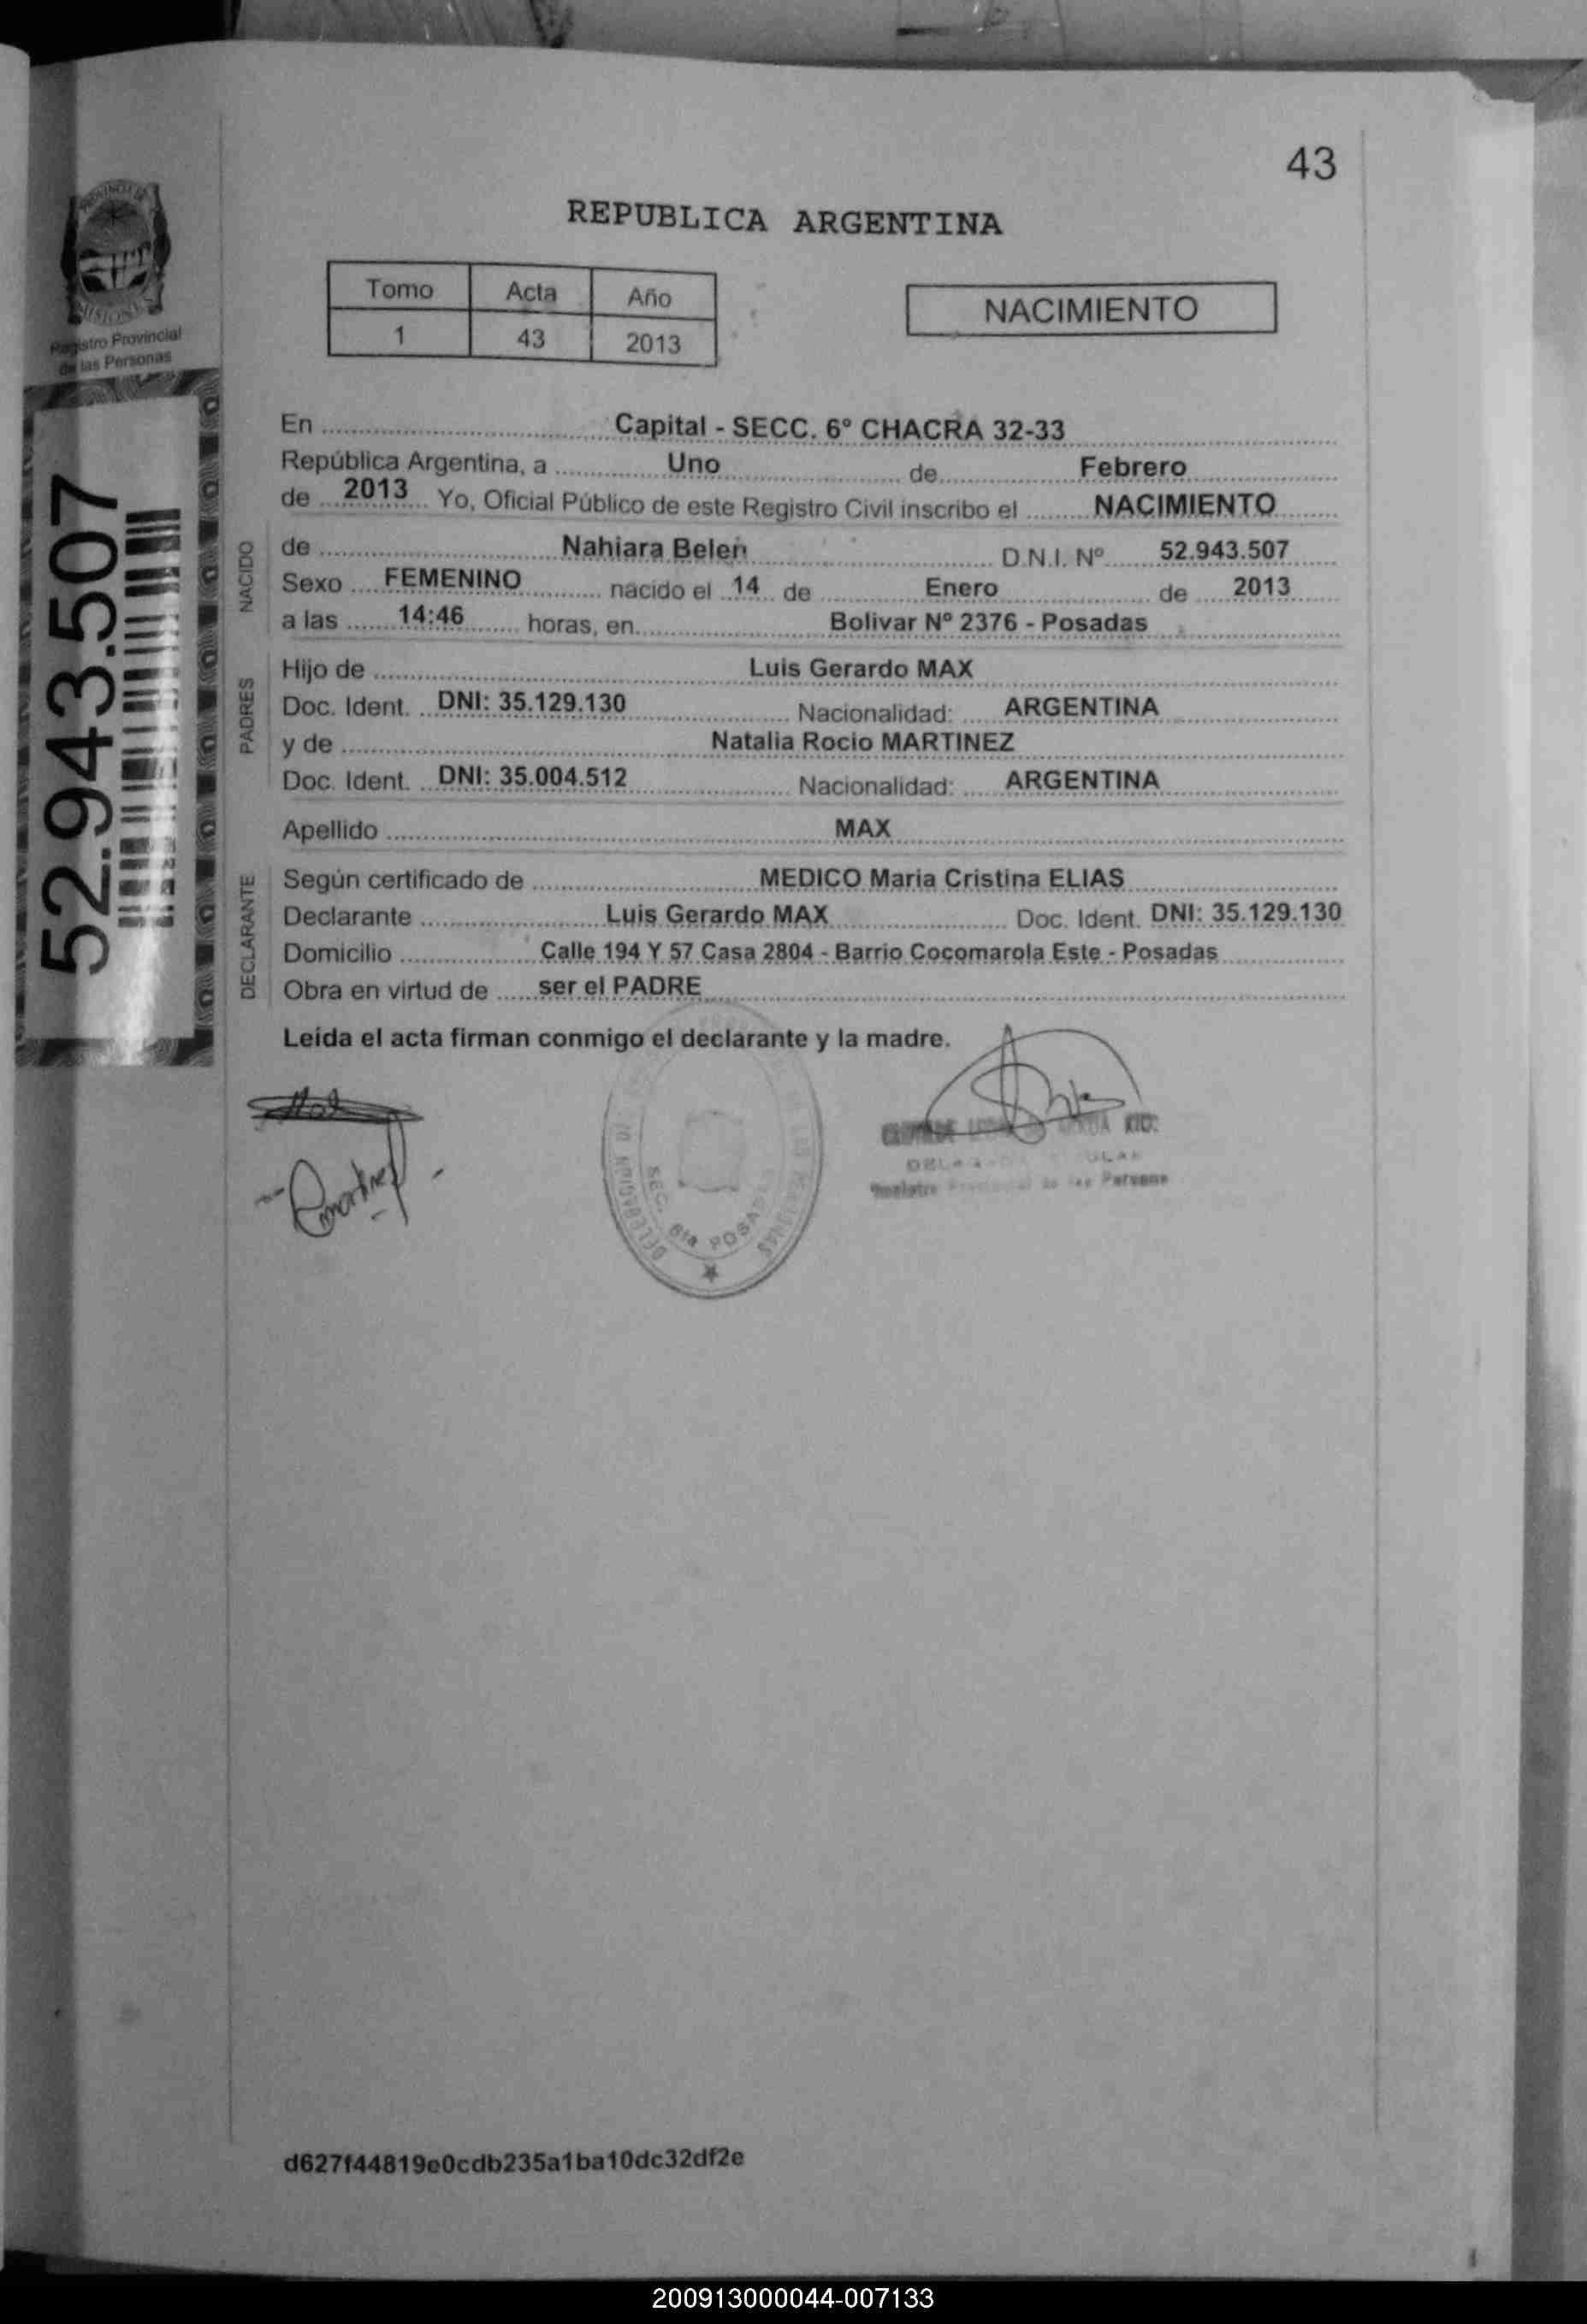 43
REPUBLICA ARGENTINA
Tomo Acta Año
1 43 2013
NACIMIENTO
PROVINCIA DE
MISIONES
Registro Provincial
de las Personas
52.943.507
En Capital - SECC. 6º CHACRA 32-33
República Argentina, a Uno de Febrero
de 2013 Yo, Oficial Público de este Registro Civil inscribo el NACIMIENTO
NACIDO
de Nahiara Belen D.N.I. Nº 52.943.507
Sexo FEMENINO nacido el 14 de Enero de 2013
a las 14:46 horas, en Bolivar Nº 2376 - Posadas
PADRES
Hijo de Luis Gerardo MAX
Doc. Ident. DNI: 35.129.130 Nacionalidad: ARGENTINA
y de Natalia Rocio MARTINEZ
Doc. Ident. DNI: 35.004.512 Nacionalidad: ARGENTINA
Apellido MAX
DECLARANTE
Según certificado de MEDICO Maria Cristina ELIAS
Declarante Luis Gerardo MAX Doc. Ident. DNI: 35.129.130
Domicilio Calle 194 Y 57 Casa 2804 - Barrio Cocomarola Este - Posadas
Obra en virtud de ser el PADRE
Leída el acta firman conmigo el declarante y la madre.
DELEGACION
SEC. 6ta
d627f44819e0cdb235a1ba10dc32df2e
200913000044-007133